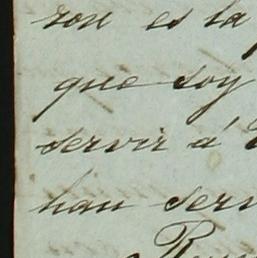 zon es la
que soy
servir á
han serv